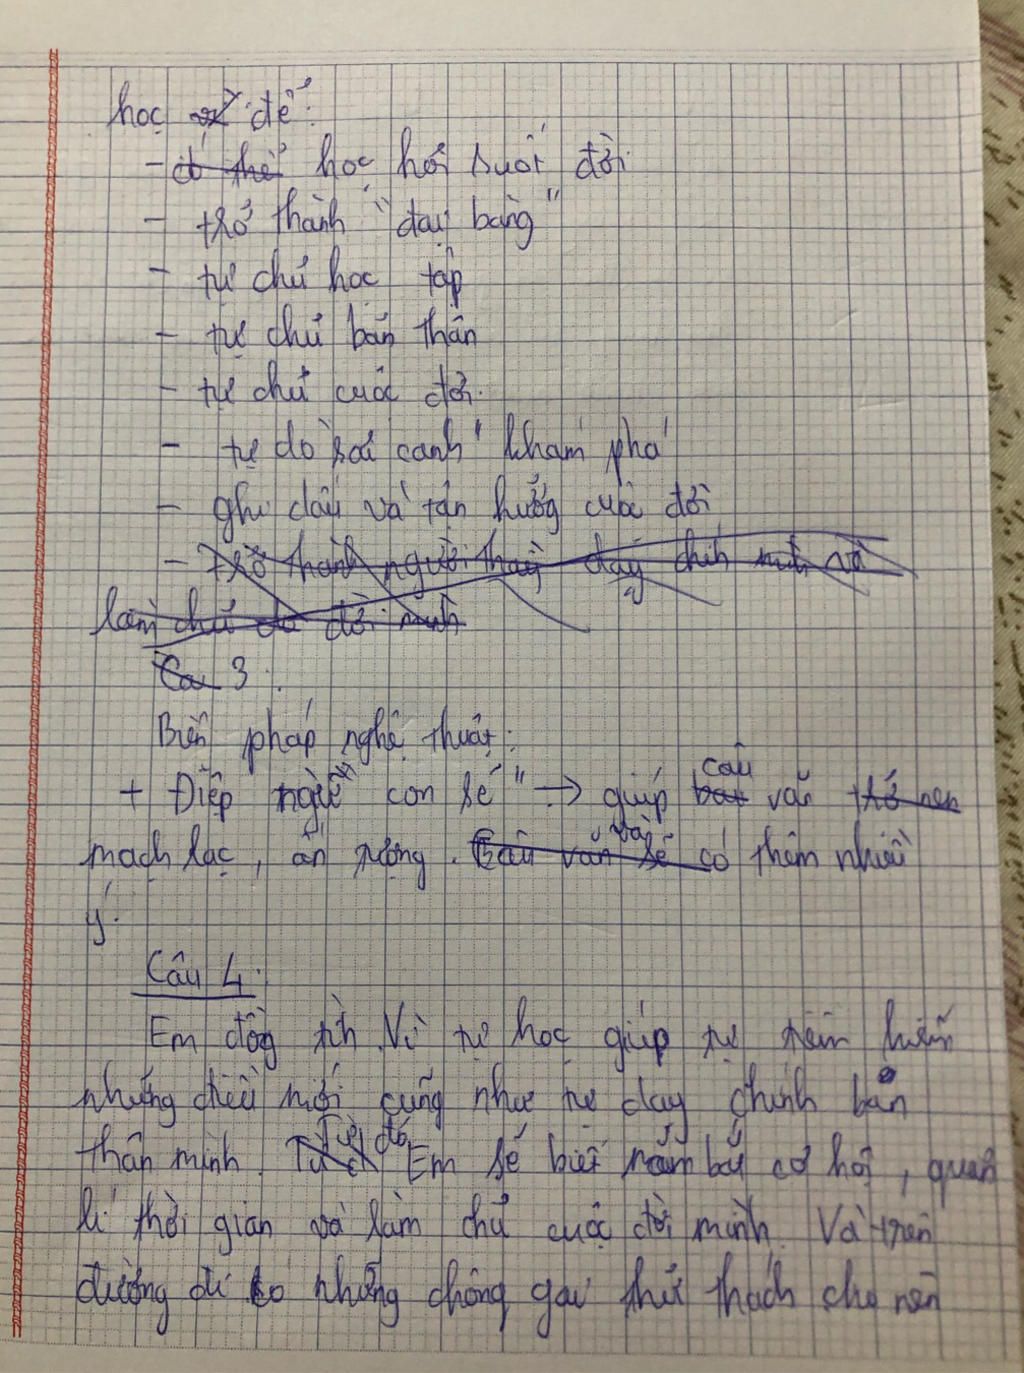 học để:
- có thể học hỏi suốt đời
- trở thành "đại bàng"
- tự chủ học tập
- tự chủ bản thân
- tự chủ cuộc đời.
- tự do "sải cánh" khám phá
- ghi dấu và tận hưởng cuộc đời
- Trở thành người thầy dạy chính mình và
làm chủ đời mình
Câu 3:
Biện pháp nghệ thuật:
+ Điệp ngữ "con sẽ" → giúp câu văn trở nên
mạch lạc, ấn tượng. Câu văn sẽ và có thêm nhiều
ý.
Câu 4:
Em đồng tình. Vì tự học giúp tự tìm hiểu
những điều mới cũng như tự dạy chính bản
thân mình. Từ đó Em sẽ biết nắm bắt cơ hội, quản
lí thời gian và làm chủ cuộc đời mình. Và trên
đường đi có những chông gai thử thách cho nên